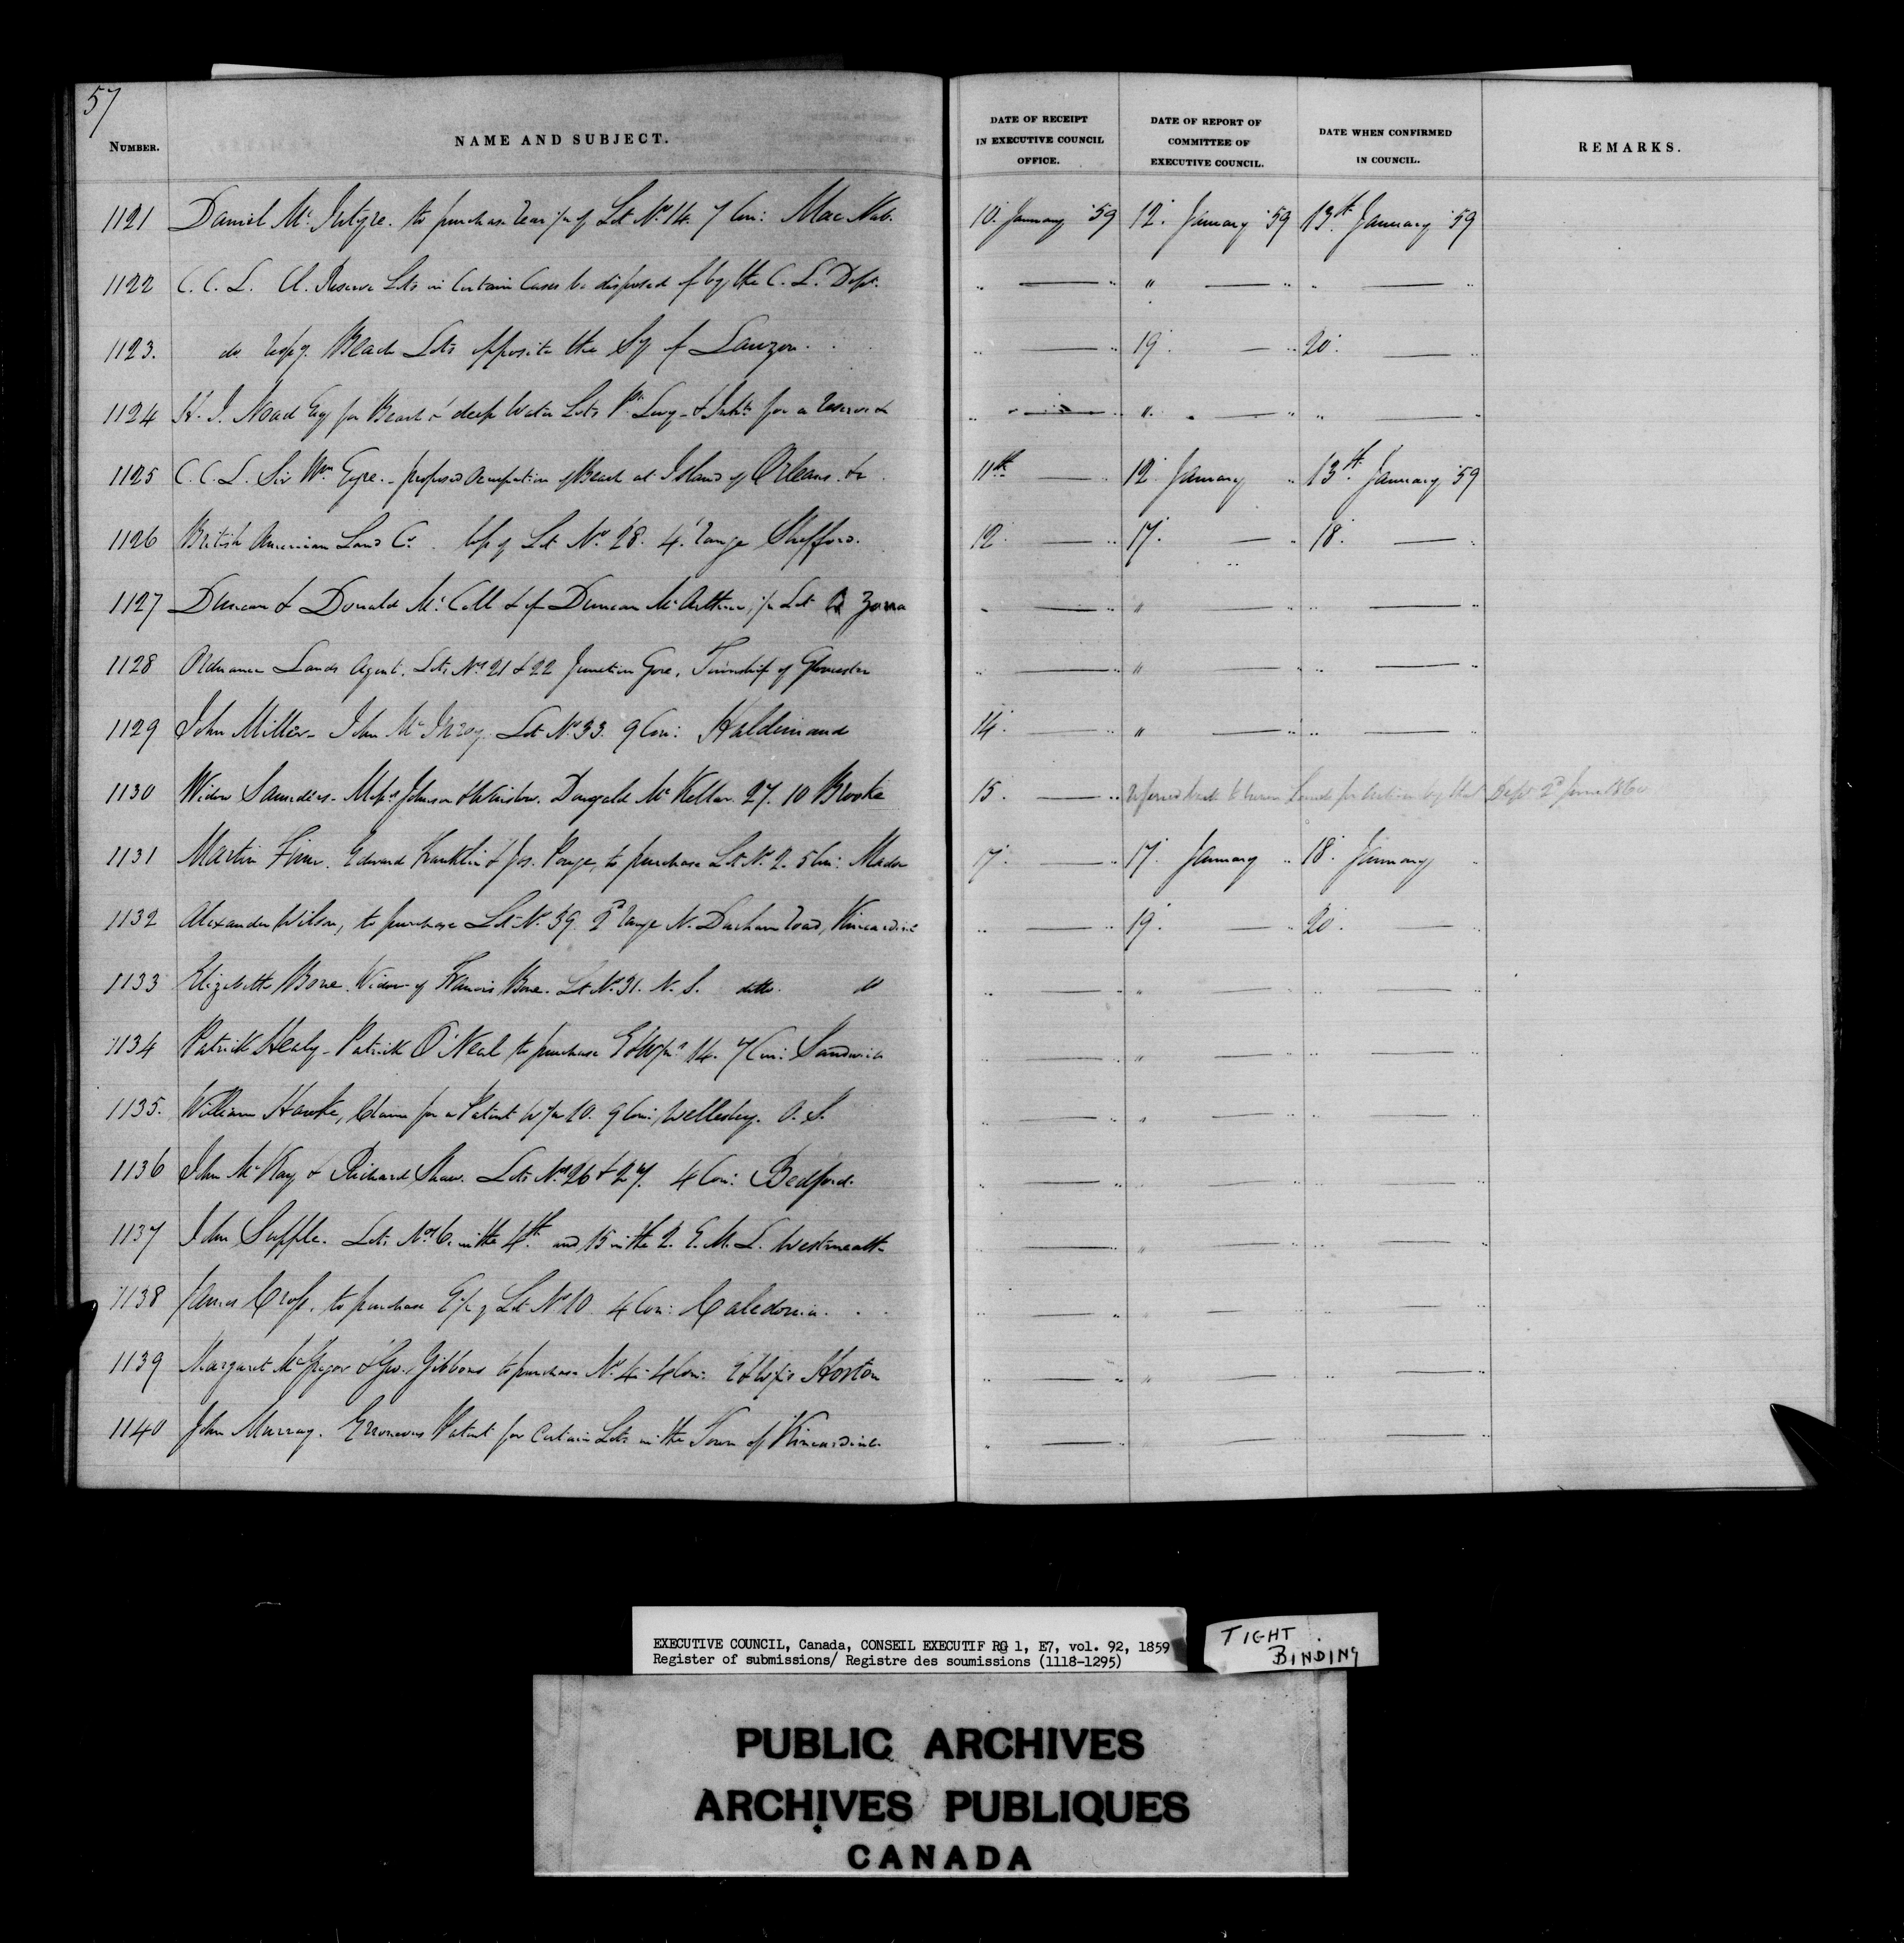 57
NUMBER. NAME AND SUBJECT. DATE OF RECEIPT IN EXECUTIVE COUNCIL OFFICE. DATE OF REPORT OF COMMITTEE OF EXECUTIVE COUNCIL. DATE WHEN CONFIRMED IN COUNCIL. REMARKS.
1121 Daniel Mc Intyre. to purchase rear ½ of Lot No 14. 7 Con: Mac Nab. 10. January '59 12. January '59 13th January '59
1122 C. C. L. Cl. Reserve Lots in Certain Cases to be disposed of by the C. L. Dept. " — " " — " " — "
1123. do resp'g Beach Lots opposite the Sy of Lauzon. " — " 19. — " 20. — "
1124 H. J. Noad Esq for Beach & deep Water Lots Pt Levy - & Inhts for a reserve & " — " " — " " — "
1125 C. C. L. Sir Wm Eyre. - proposed Occupation of Beach at Island of Orleans. &c 11th — " 12 January " 13th January '59
1126 British American Land Co. resp'g Lot No 28. 4. range Shefford. 12. — " 17. — " 18. — "
1127 Duncan & Donald Mc Coll & of Duncan Mc Arthur, ½ Lot Zorra " — " " — " " — "
1128 Ordnance Lands Agent. Lots Nos 21 & 22 Junction Gore, Township of Gloucester " — " " — " " — "
1129 John Miller - John Mc Inroy. Lot No 33. 9 Con: Haldimand 14. — " " — " " — "
1130 Widow Saunders - Messrs Johnson & Winslow. Dougald Mc Kellar. 27. 10 Brooke 15. — " referred back to Crown Lands for action by that Dept 2d June 1860
1131 Martin Finn. Edward Franklin & Jos. Ponge, to purchase Lot No 2. 5 Con: Madoc 17. — " 17. January " 18. January "
1132 Alexander Wilson, to purchase Lot No. 39. 2d range N. Durham road, Kincardine " — " 19. — " 20. — "
1133 Elizabeth Bone. Widow of Francis Bone. Lot No. 31. N. S. ditto. do " — " " — " " — "
1134 Patrick Healy - Patrick O'Neal to purchase E & W ½s 14. 7 Con: Sandwich " — " " — " " — "
1135. William Hawke, Claim for a Patent W ½ 10. 9 Con: Wellesley. O. S. " — " " — " " — "
1136 John Mc Kay & Richard Shaw. Lots Nos 26 & 27. 4 Con: Bedford. " — " " — " " — "
1137 John Supple. Lots Nos 6. in the 4th and 15 in the 2. E. M. L. Westmeath " — " " — " " — "
1138 James Cross. to purchase E ½ of Lot No 10. 4 Con: Caledonia. " — " " — " " — "
1139 Margaret McGregor & Geo. Gibbons to purchase No 4 - 4 Con: E & W ½s Horton " — " " — " " — "
1140 John Murray. Erroneous Patent for Certain Lots in the Town of Kincardine. " — " " — " " — "
EXECUTIVE COUNCIL, Canada, CONSEIL EXECUTIF RG 1, E7, vol. 92, 1859
Register of submissions/ Registre des soumissions (1118-1295)
TIGHT BINDING
PUBLIC ARCHIVES
ARCHIVES PUBLIQUES
CANADA